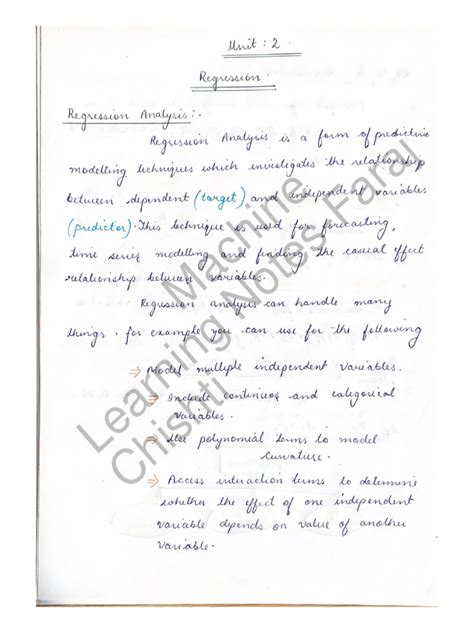 Unit : 2.
Regression.
Regression Analysis :-
Regression Analysis is a form of predictive
modelling techniques which investigates the relationship
between dependent (target) and independent variables
(predictor). This technique is used for forecasting,
time series modelling and finding the causal effect
relationship between variables.
Regression analysis can handle many
things. for example you can use for the following
⇒ Model multiple independent variables.
⇒ Include continuos and categorical
variables.
⇒ Use polynomial terms to model
curvature.
⇒ Access interaction terms to determine
whether the effect of one independent
variable depends on value of another
variable.
Machine
Learning Notes Faraj
Chishti